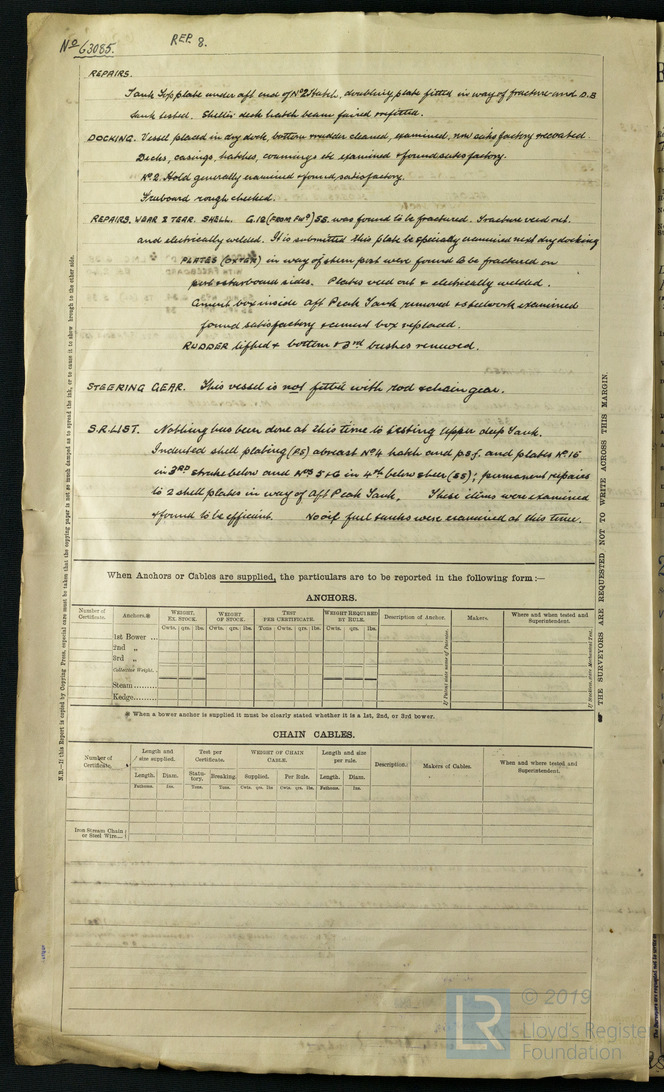 No 63085.
REP. 8.
REPAIRS.
Tank Top plate under aft end of No 2 Hatch, doubling plate fitted in way of fracture and D.B
tank tested. Shelter deck hatch beam faired & refitted.
DOCKING. Vessel placed in dry dock, bottom & rudder cleaned, examined, now satisfactory & recoated.
Decks, casings, hatches, coamings etc examined & found satisfactory.
No. 2. Hold generally examined & found satisfactory.
Freeboard rough checked.
REPAIRS, WEAR & TEAR. SHELL. G.12 (FROM FWD) SS. was found to be fractured. Fracture veed out.
and electrically welded. It is submitted this plate be specially examined next dry docking
PLATES (OXTER) in way of stern post were found to be fractured on
port & starboard sides. Plates veed out & electrically welded.
Cement box inside Aft Peak Tank removed & steelwork examined
found satisfactory & cement box replaced.
RUDDER lifted & bottom & 3rd bushes renewed.
STEERING GEAR. This vessel is not fitted with rod & chain gear.
S.R. LIST. Nothing has been done at this time to testing upper deep Tank.
Indented shell plating (PS) abreast No 4 hatch and and plates No 16
in 3RD strake below and Nos 5 & 6 in 4th below sheer (SS); permanent repairs
to 2 shell plates in way of Aft Peak Tank. These items were examined
& found to be efficient. No oil fuel tanks were examined at this time.
When Anchors or Cables are supplied, the particulars are to be reported in the following form :—
ANCHORS.
Number of Certificate. Anchors.* WEIGHT, EX. STOCK. WEIGHT OF STOCK. TEST PER CERTIFICATE. WEIGHT REQUIRED BY RULE. Description of Anchor. Makers. Where and when tested and Superintendent.
Cwts. qrs. lbs. Cwts. qrs. lbs. Tons Cwts. qrs. lbs. Cwts. qrs. lbs.
1st Bower ...
2nd „
3rd „
Collective Weight.
Stream
Kedge
* When a bower anchor is supplied it must be clearly stated whether it is a 1st, 2nd, or 3rd bower.
CHAIN CABLES.
Number of Certificate. Length and size supplied. Test per Certificate. WEIGHT OF CHAIN CABLE. Length and size per rule. Description. Makers of Cables. When and where tested and Superintendent.
Length. Diam. Statutory. Breaking. Supplied. Per Rule. Length. Diam.
Fathoms. Ins. Tons. Tons. Cwts. qrs. lbs Cwts. qrs. lbs. Fathoms. Ins.
Iron Stream Chain or Steel Wire
N.B.—If this Report is copied by Copying Press, especial care must be taken that the copying paper is not so much damped as to spread the ink, or to cause it to show through to the other side.
THE SURVEYORS ARE REQUESTED NOT TO WRITE ACROSS THIS MARGIN.
LR
© 2019
Lloyd's Register
Foundation